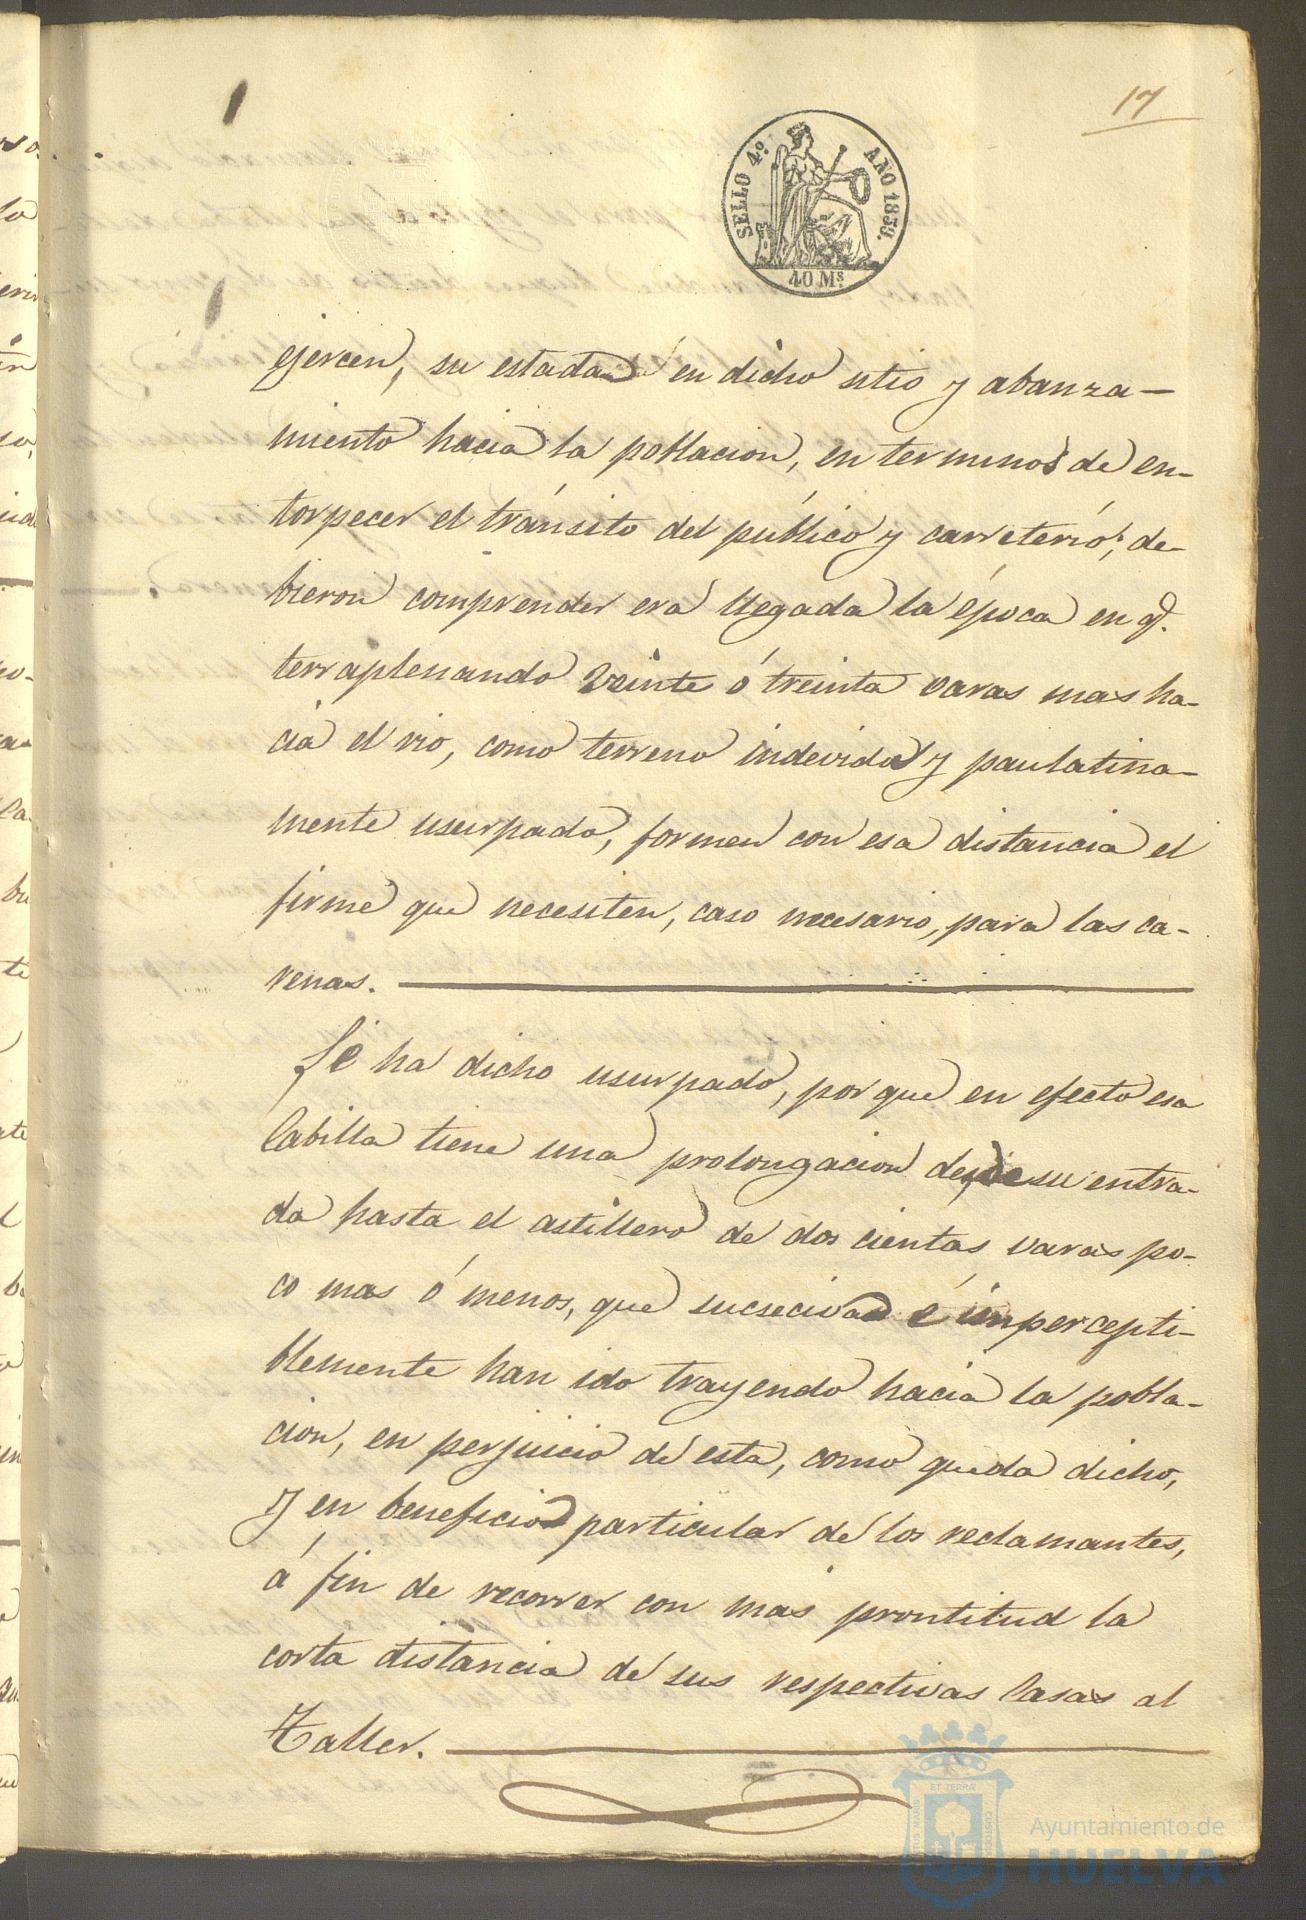 17
SELLO 4º AÑO 1859.
40 Ms
ejercen, su estada en dicho sitio y abanza-
miento hacia la poblacion, en terminos de en-
torpecer el tránsito del público y carreterió, de-
bieron comprender era llegada la época en q.
terraplenando veinte ó treinta varas mas ha-
cia el rio, como terreno indevida y paulatina-
mente usurpado, formen con esa distancia el
firme que necesiten, caso necesario, para las ca-
renas.
Se ha dicho usurpado, porque en efecto esa
Cabilla tiene una prolongacion desde su entra-
da hasta el astillero de dos cientas varas po-
co mas ó menos, que sucseciva é impercepti-
blemente han ido trayendo hacia la pobla-
cion, en perjuicio de esta, como queda dicho,
y en beneficio particular de los reclamantes,
á fin de recorrer con mas prontitud la
corta distancia de sus respectivas Casas al
Taller.
ET TERRÆ
PORTUS MARIS CUSTODIA
Ayuntamiento de
HUELVA